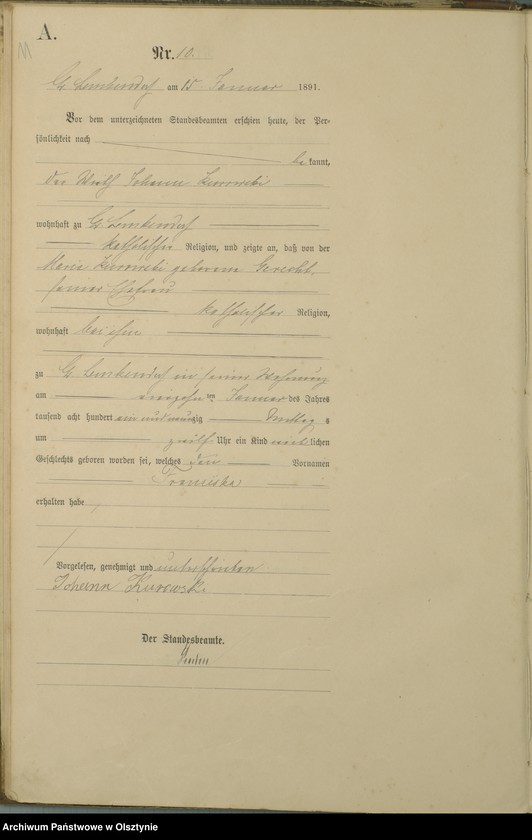 A.
11
Nr. 10.
Gr. Lemkendorf am 15 Januar 1891.
Vor dem unterzeichneten Standesbeamten erschien heute, der Per-
sönlichkeit nach
bekannt,
der Wirth Johann Kurowski
wohnhaft zu Gr. Lemkendorf
katholischer Religion, und zeigte an, daß von der
Maria Kurowski geborene Gerecht,
seiner Ehefrau
katholischer Religion,
wohnhaft bei ihm
zu Gr. Lemkendorf in seiner Wohnung
am ten Januar des Jahres
tausend acht hundert ein und neunzig Mittag s
um zwölf Uhr ein Kind weiblichen
Geschlechts geboren worden sei, welches den Vornamen
Franciska
erhalten habe
Vorgelesen, genehmigt und unterschrieben
Johann Kurowski
Der Standesbeamte.
Archiwum Państwowe w Olsztynie